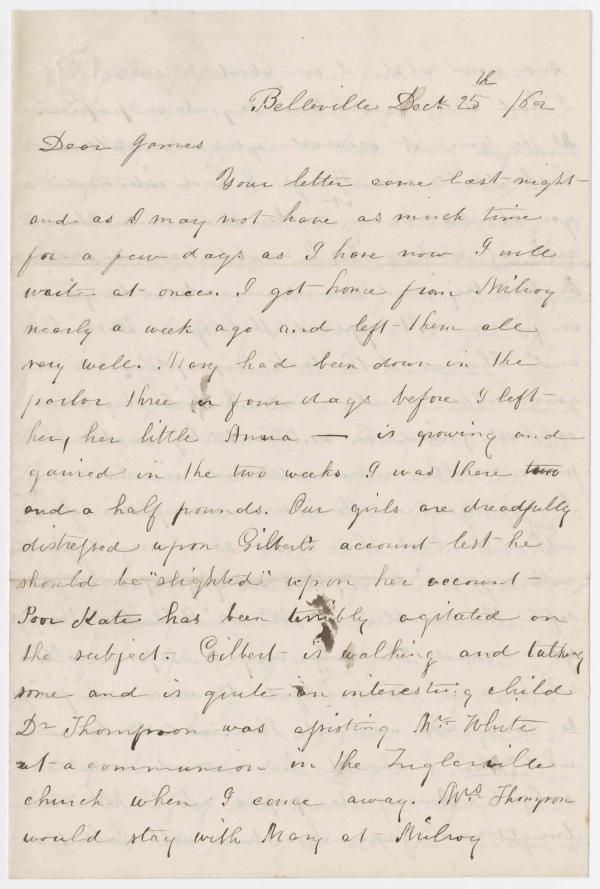 Belleville Dec. 25th /62
Dear James
Your letter came last night
and as I may not have as much time
for a few days as I have now I will
write at once. I got home from Milroy
nearly a week ago and left them all
very well. Mary had been down in the
parlor three or four days before I left
her, her little Anna — is growing and
gained in the two weeks I was there two
and a half pounds. Our girls are dreadfully
distressed upon Gilbert's account lest he
should be "slighted" upon her account-
Poor Kate has been terribly agitated on
the subject. Gilbert is walking and talking
some and is quite an interesting child
Dr Thompson was assisting Mr. White
at a communion in the
church when I came away. Mrs. Thompson
would stay with Mary at Milroy